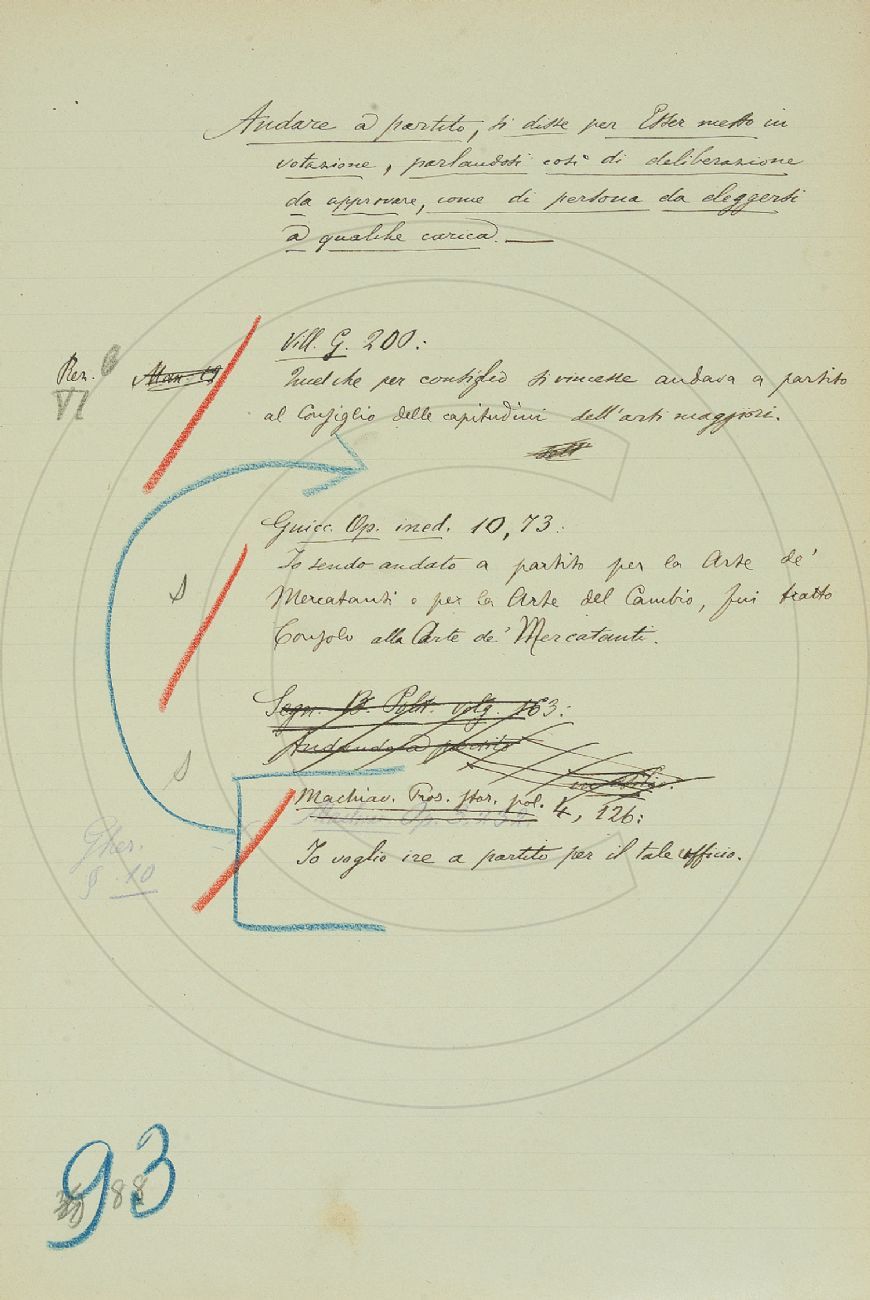 Andare a partito, si disse per Esser messo in
votazione, parlandosi così di deliberazione
da approvare, come di persona da eleggersi
a qualche carica.—
Vill. G. 200:
Ren. VI
Quel che per consiglio si vincesse andava a partito
al Consiglio delle capitudini dell'arti maggiori.
Guicc. Op. ined. 10, 73:
Io sendo andato a partito per la Arte de'
Mercatanti o per la Arte del Cambio, fui tratto
Consolo alla Arte de' Mercatanti.
Segn. B. Polit. volg. 163:
Andando a partito
Machiav. Pros. stor. pol. 4, 126:
Io voglio ire a partito per il tale ufficio.
Gher.
§ 10
93
88